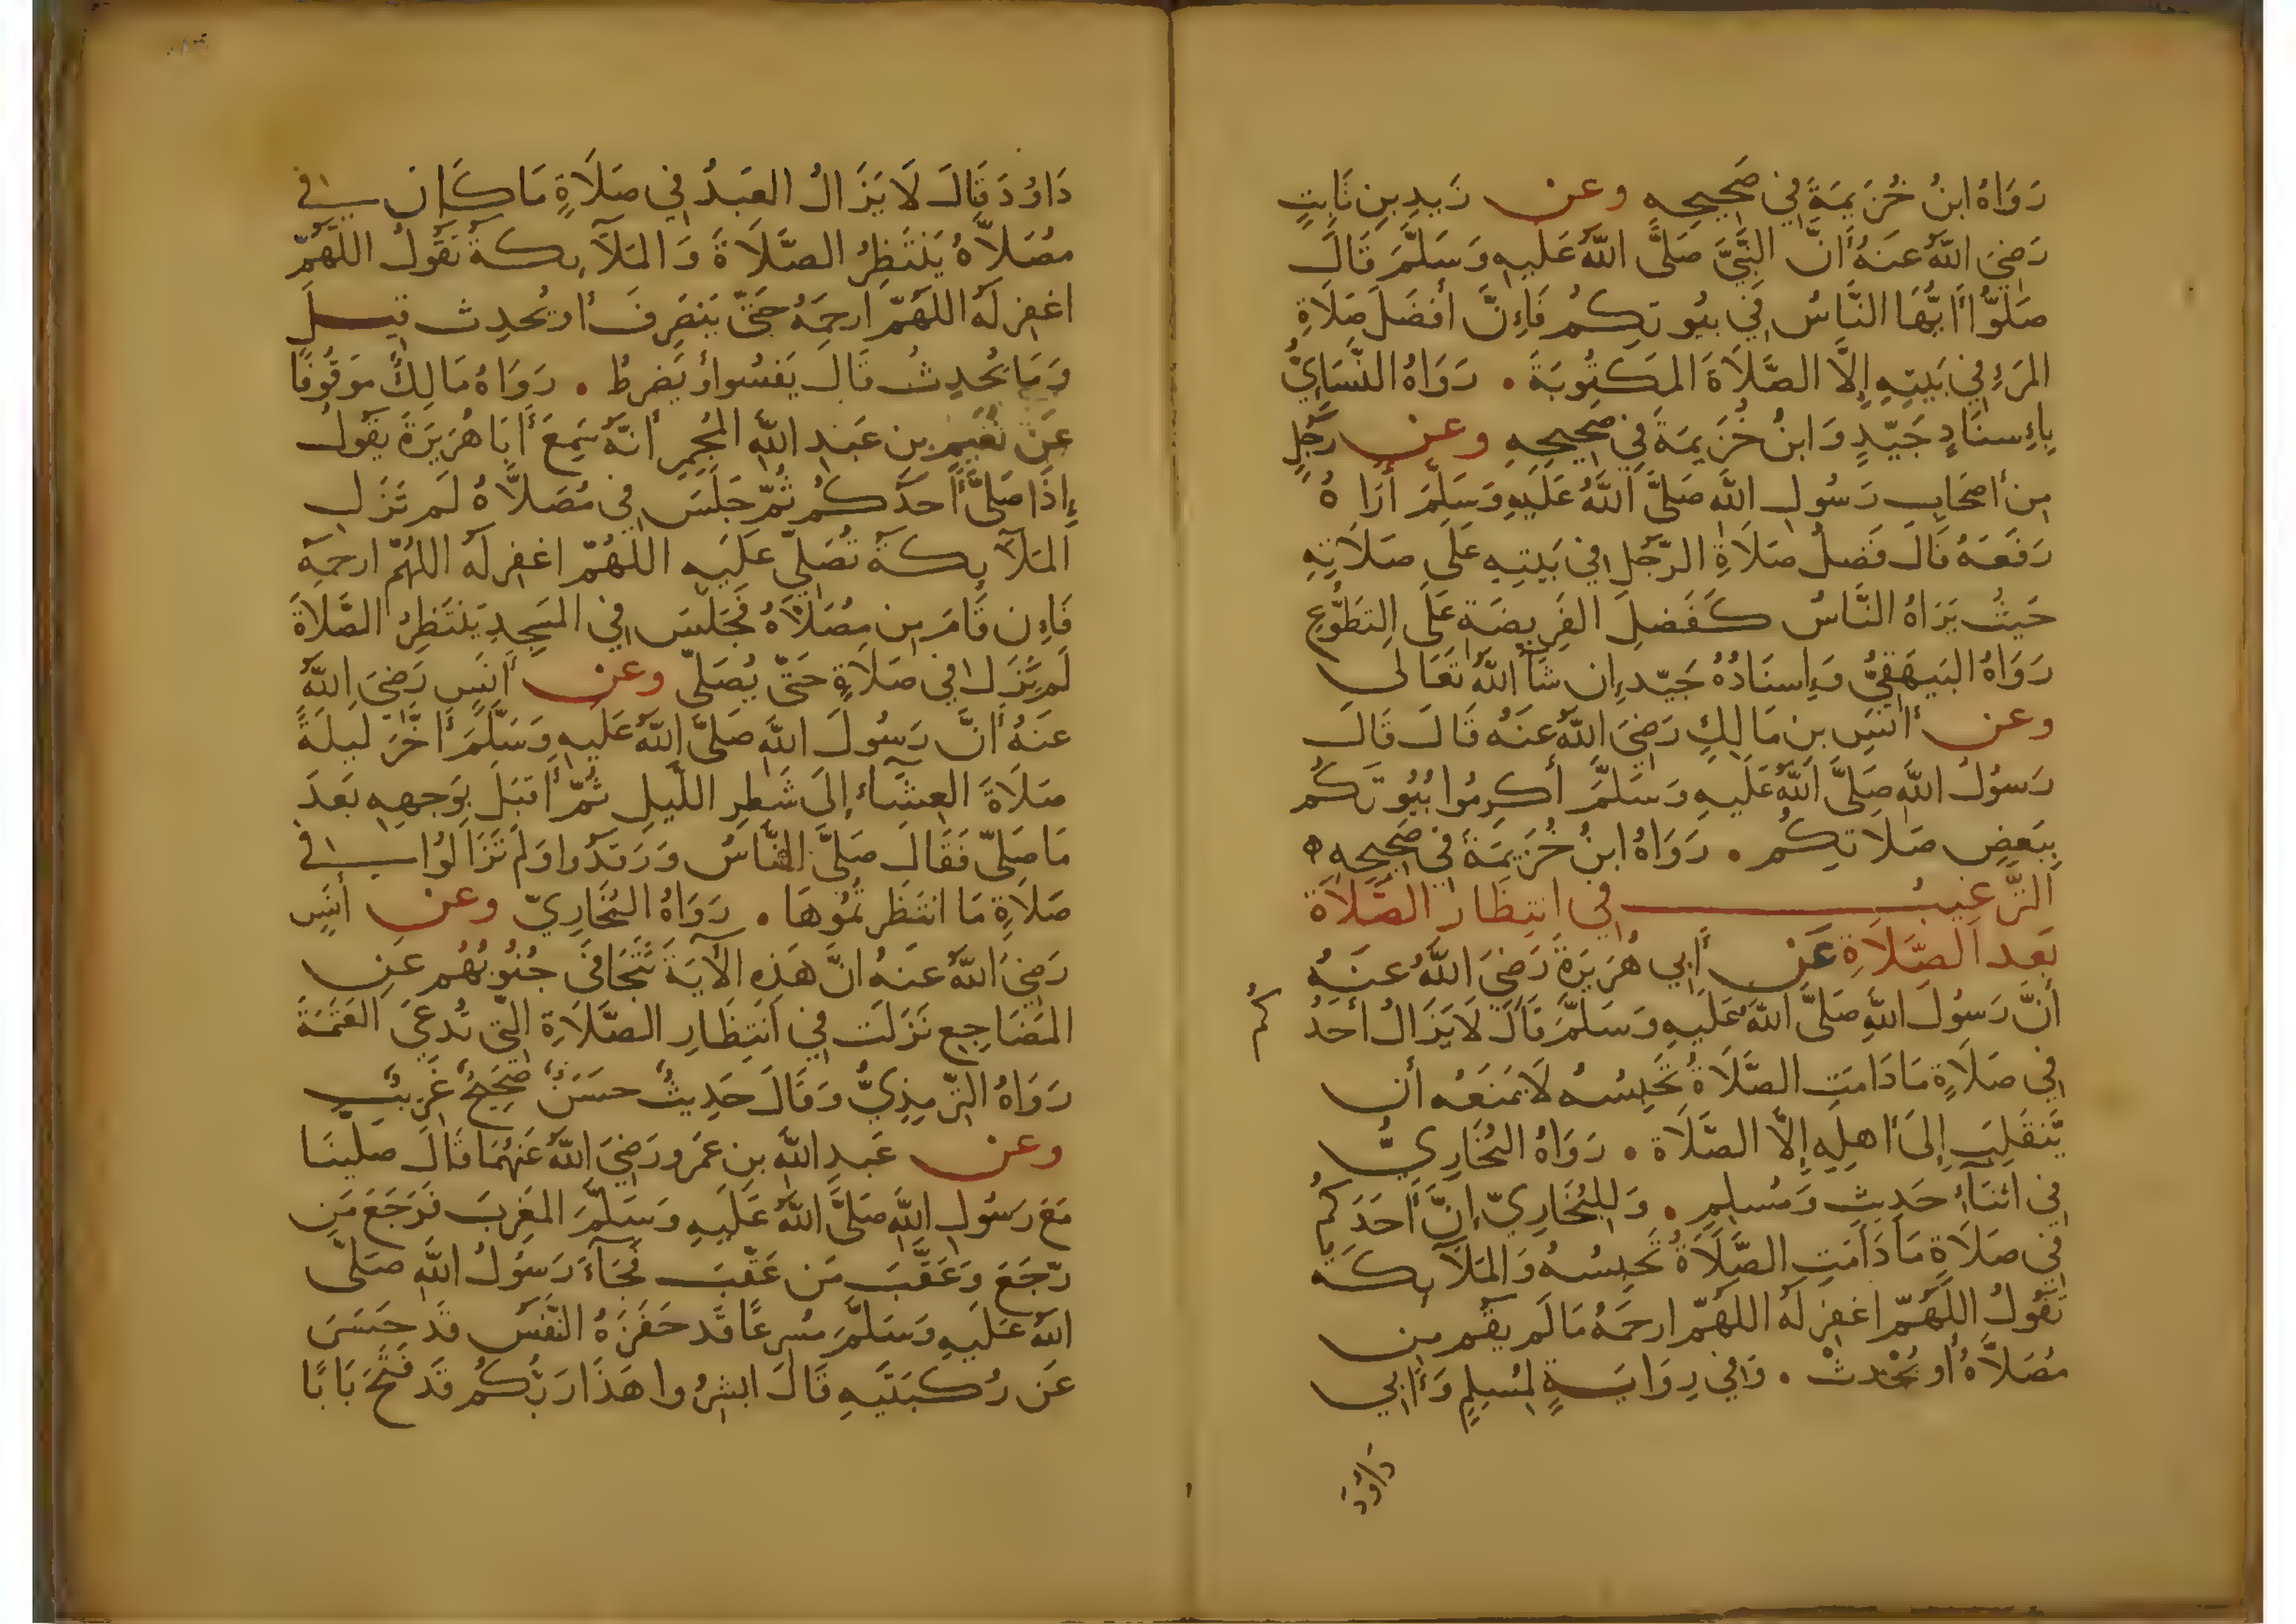 رَوَاهُ ابنُ خُزَيمَةَ فِي صَحِيحِهِ وعن زَيدِ بنِ ثَابِتٍ
رَضِيَ اللَّهُ عَنهُ أَنَّ النَّبِيَّ صَلَّى اللَّهُ عَلَيهِ وَسَلَّمَ قَالَ
صَلُّوا أَيُّهَا النَّاسُ فِي بُيُوتِكُم فَإِنَّ أَفضَلَ صَلَاةِ
المَرءِ فِي بَيتِهِ إِلَّا الصَّلَاةَ المَكتُوبَةَ . رَوَاهُ النَّسَايِيُّ
بِإِسنَادٍ جَيِّدٍ وَابنُ خُزَيمَةَ فِي صَحِيحِهِ وعن رَجُلٍ
مِن أَصحَابِ رَسُولِ اللَّهِ صَلَّى اللَّهُ عَلَيهِ وَسَلَّمَ أُرَاهُ
رَفَعَهُ قَالَ فَضلُ صَلَاةِ الرَّجُلِ فِي بَيتِهِ عَلَى صَلَاتِهِ
حَيثُ يَرَاهُ النَّاسُ كَفَضلِ الفَرِيضَةِ عَلَى التَّطَوُّعِ
رَوَاهُ البَيهَقِيُّ وَإِسنَادُهُ جَيِّد إِن شَآ اللَّهُ تَعَالَى
وعن أَنَسِ بنِ مَالِكٍ رَضِيَ اللَّهُ عَنهُ قَالَ قَالَ
رَسُولُ اللَّهِ صَلَّى اللَّهُ عَلَيهِ وَسَلَّمَ أَكرِمُوا بُيُوتَكُم
بِبَعضِ صَلَاتِكُم . رَوَاهُ ابنُ خُزَيمَةَ فِي صَحِيحِهِ ه
التَّرغِيبُ فِي انتِظَارِ الصَّلَاةِ
بَعدَ الصَّلَاةِ عَن أَبِي هُرَيرَةَ رَضِيَ اللَّهُ عَنهُ
أَنَّ رَسُولَ اللَّهِ صَلَّى اللَّهُ عَلَيهِ وَسَلَّمَ قَالَ لَا يَزَالُ أَحَدُكُم
فِي صَلَاةٍ مَا دَامَتِ الصَّلَاةُ تَحبِسُهُ لَا يَمنَعُهُ أَن
يَّنقَلِبَ إِلَى أَهلِهِ إِلَّا الصَّلَاة . رَوَاهُ البُخَارِيُّ
فِي اثنَآءِ حَدِيثٍ وَمُسلِمٍ . وَلِلبُخَارِيِّ إِنَّ أَحَدَكُم
فِي صَلَاةٍ مَا دَامَتِ الصَّلَاةُ تَحبِسُهُ وَالمَلَآيِكَةُ
تَقُولُ اللَّهُمَّ اغفِر لَهُ اللَّهُمَّ ارحَمهُ مَا لَم يَقُم مِن
مُصَلَّاهُ أَو يُحدِث . وَفِي رِوَايَةٍ لِمُسلِمٍ وَأَبِي
دَاوُدَ
دَاوُدَ قَالَ لَا يَزَالُ العَبدُ فِي صَلَاةٍ مَا كَانَ فِي
مُصَلَّاهُ يَنتَظِرُ الصَّلَاةَ وَالمَلَآيِكَةُ تَقُولُ اللَّهُمَّ
اغفِر لَهُ اللَّهُمَّ ارحَمهُ حَتَّى يَنصَرِفَ أَو يُحدِث قِيلَ
وَمَا يُحدِثُ قَالَ يَفسُوا أَو يَضرِطُ . رَوَاهُ مَالِكٌ مَوقُوفًا
عَن نُعَيمِ بنِ عَبدِ اللَّهِ المُجمِرِ أَنَّهُ سَمِعَ أَبَا هُرَيرَةَ يَقُولُ
إِذَا صَلَّى أَحَدُكُم ثُمَّ جَلَسَ فِي مُصَلَّاهُ لَم تَزَلِ
المَلَآيِكَةُ تُصَلِّي عَلَيهِ اللَّهُمَّ اغفِر لَهُ اللَّهُمَّ ارحَمهُ
فَإِن قَامَ مِن مُصَلَّاهُ فَجَلَسَ فِي المَسجِدِ يَنتَظِرُ الصَّلَاةَ
لَم يَزَل فِي صَلَاةٍ حَتَّى يُصَلِّي وعن أَنَسٍ رَضِيَ اللَّهُ
عَنهُ أَنَّ رَسُولَ اللَّهِ صَلَّى اللَّهُ عَلَيهِ وَسَلَّمَ أَخَّرَ لَيلَةً
صَلَاةَ العِشَآءِ إِلَى شَطرِ اللَّيلِ ثُمَّ أَقبَلَ بِوَجهِهِ بَعدَ
مَا صَلَّى فَقَالَ صَلَّى النَّاسُ وَرَقَدُوا وَلَم تَزَالُوا فِي
صَلَاةٍ مَا انتَظَرتُمُوهَا . رَوَاهُ البُخَارِيّ وعن أَنَسٍ
رَضِيَ اللَّهُ عَنهُ انَّ هَذِهِ الآيَةَ تَتَجَافَى جُنُوبُهُم عَنِ
المَضَاجِعِ نَزَلَت فِي انتِظَارِ الصَّلَاةِ الَّتِي تُدعَى العَتَمَةَ
رَوَاهُ التِّرمِذِيُّ وَقَالَ حَدِيثٌ حَسَنٌ صَحِيحٌ غَرِيبٌ
وعن عَبدِ اللَّهِ بنِ عَمرٍو رَضِيَ اللَّهُ عَنهُمَا قَالَ صَلَّينَا
مَعَ رَسُولِ اللَّهِ صَلَّى اللَّهُ عَلَيهِ وَسَلَّمَ المَغرِبَ فَرَجَعَ مَن
رَّجَعَ وَعَقَّبَ مَن عَقَّبَ فَجَآءَ رَسُولُ اللَّهِ صَلَّى
اللَّهُ عَلَيهِ وَسَلَّمَ مُسرِعًا قَد حَفَزَهُ النَّفَسُ قَد حَسَرَ
عَن رُكبَتَيهِ قَالَ ابشِرُوا هَذَا رَبُّكُم قَد فَتَحَ بَابًا